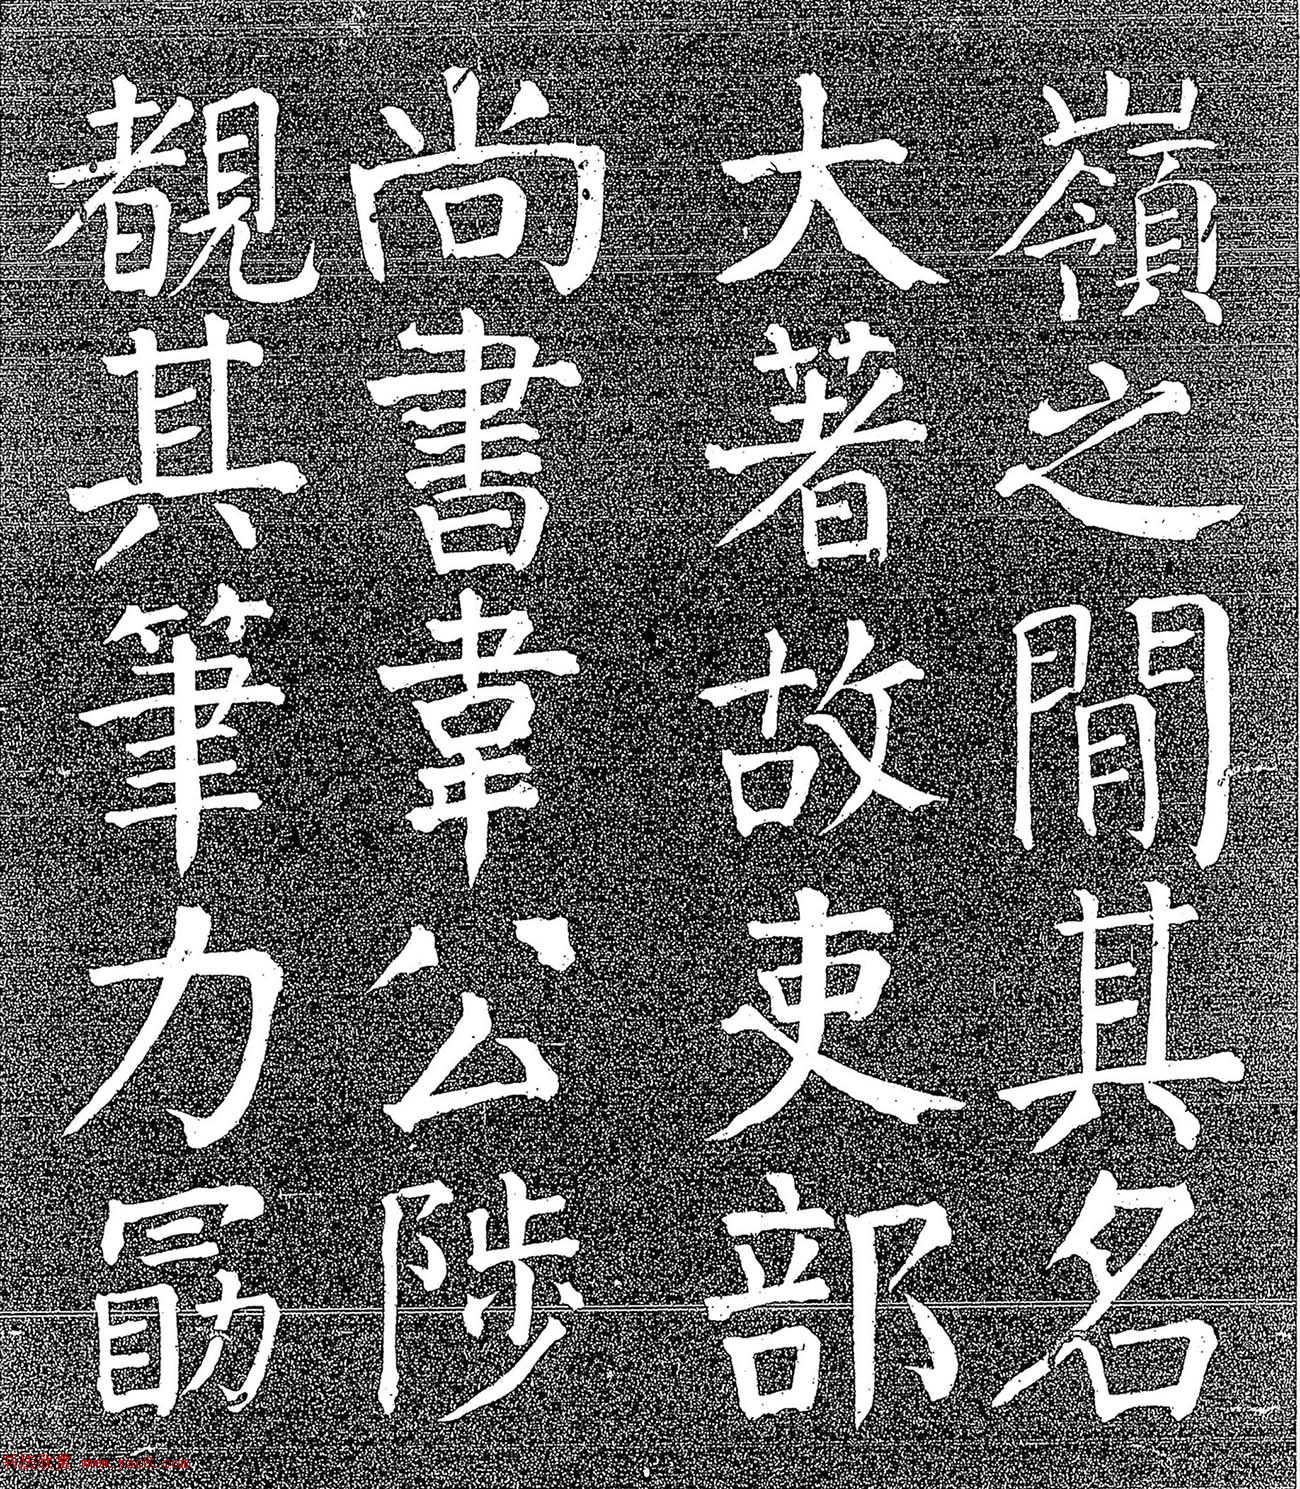 嶺之間其名
大著故吏部
尚書韋公陟
覩其筆力勗
www.yac8.com